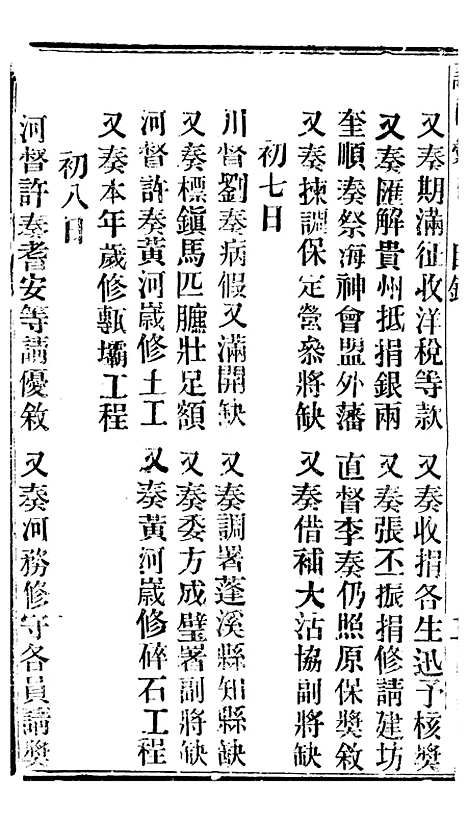 又奏期滿征收洋稅等款　又奏收捐各生迅予核奬
又奏匯解貴州抵捐銀兩　又奏張丕振捐修請建坊
奎順奏祭海神會盟外藩　直督李奏仍照原保奬敘
又奏揀調保定營叅將缺　又奏借補大沽協副將缺
初七日
川督劉奏病假又滿開缺　又奏調署蓬溪縣知縣缺
又奏標鎭馬匹臕壯足額　又奏委方成璧署副將缺
河督許奏黃河歲修土工　又奏黃河歲修碎石工程
又奏本年歲修甎壩工程
初八日
河督許奏耆安等請優敘　又奏河務修守各員請奬